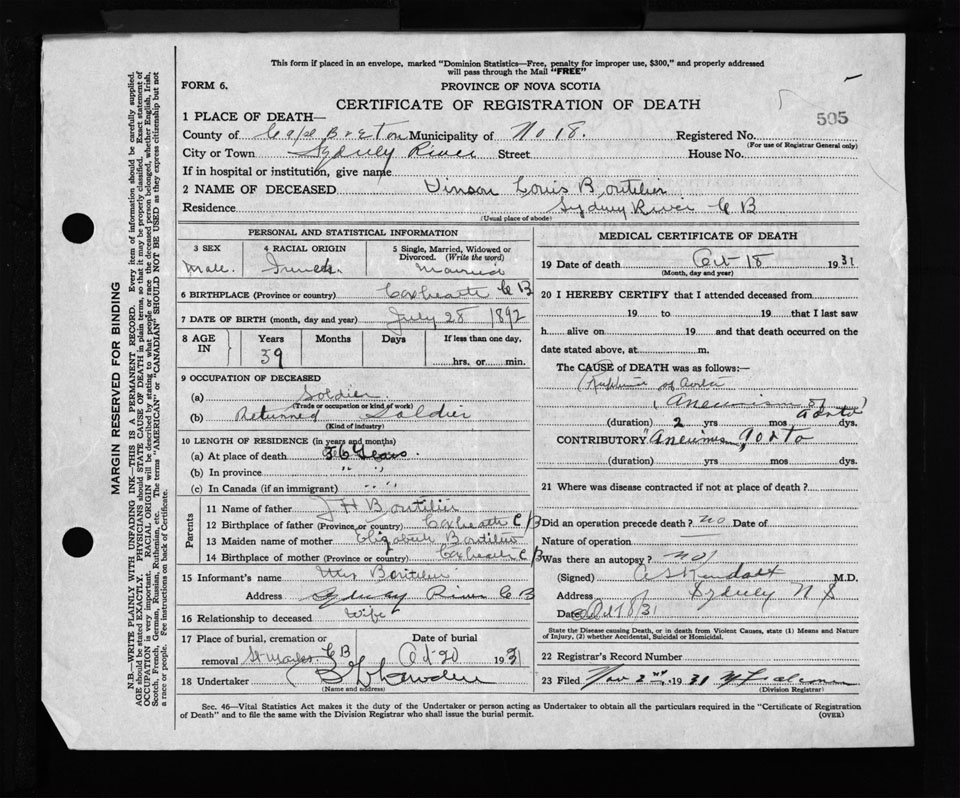 This form if placed in an envelope, marked "Dominion Statistics—Free, penalty for improper use, $300," and properly addressed
will pass through the Mail "FREE"
FORM 6.
PROVINCE OF NOVA SCOTIA
CERTIFICATE OF REGISTRATION OF DEATH
505
1 PLACE OF DEATH—
County of Cape Breton Municipality of No 18. Registered No.
(For use of Registrar General only)
City or Town Sydney River Street House No.
If in hospital or institution, give name
2 NAME OF DECEASED Vinson Louis Boutilier
Residence Sydney River C B
(Usual place of abode)
PERSONAL AND STATISTICAL INFORMATION
3 SEX 4 RACIAL ORIGIN 5 Single, Married, Widowed or
Divorced. (Write the word)
Male. Married
6 BIRTHPLACE (Province or country) Coxheath C B
7 DATE OF BIRTH (month, day and year) July 28 1892
8 AGE IN Years Months Days If less than one day,
39 hrs. or min.
9 OCCUPATION OF DECEASED
(a) Soldier
(Trade or occupation or kind of work)
(b) Returned Soldier
(Kind of industry)
10 LENGTH OF RESIDENCE (in years and months)
(a) At place of death 36 Years.
(b) In province " "
(c) In Canada (if an immigrant) " "
Parents
11 Name of father J H Boutilier
12 Birthplace of father (Province or country) Coxheath C B
13 Maiden name of mother Elizabeth Boutilier
14 Birthplace of mother (Province or country) Coxheath C B
15 Informant's name Mrs Boutilier
Address Sydney River C B
16 Relationship to deceased Wife
17 Place of burial, cremation or Date of burial
removal C B Oct 20 1931
18 Undertaker
(Name and address)
MEDICAL CERTIFICATE OF DEATH
19 Date of death Oct 18 1931
(Month, day and year)
20 I HEREBY CERTIFY that I attended deceased from
19 to 19 that I last saw
h alive on 19 and that death occurred on the
date stated above, at m.
The CAUSE of DEATH was as follows:—
Rupture of Aorta
(Aneurism of Aorta)
(duration) 2 yrs mos dys.
CONTRIBUTORY Aneurism Aorta
(duration) yrs mos dys.
21 Where was disease contracted if not at place of death?
Did an operation precede death? no Date of
Nature of operation
Was there an autopsy? no
(Signed) A S Kendall M.D.
Address Sydney N S
Date Oct 18/31
State the Disease causing Death, or in death from Violent Causes, state (1) Means and Nature
of Injury, (2) whether Accidental, Suicidal or Homicidal.
22 Registrar's Record Number
23 Filed Nov 2nd 1931
(Division Registrar)
Sec. 46—Vital Statistics Act makes it the duty of the Undertaker or person acting as Undertaker to obtain all the particulars required in the "Certificate of Registration
of Death" and to file the same with the Division Registrar who shall issue the burial permit.
(OVER)
MARGIN RESERVED FOR BINDING
N.B.—WRITE PLAINLY WITH UNFADING INK—THIS IS A PERMANENT RECORD. Every item of information should be carefully supplied.
AGE should be stated EXACTLY. PHYSICIANS should STATE CAUSE OF DEATH in plain terms, so that it may be properly classified. Exact statement of
OCCUPATION is very important. RACIAL ORIGIN will be described by stating to what people or race the deceased person belonged, whether English, Irish,
Scotch, French, German, Russian, Ruthenian, etc. The terms "AMERICAN" or "CANADIAN" SHOULD NOT BE USED as they express citizenship but not
a race or people. Fee instructions on back of Certificate.